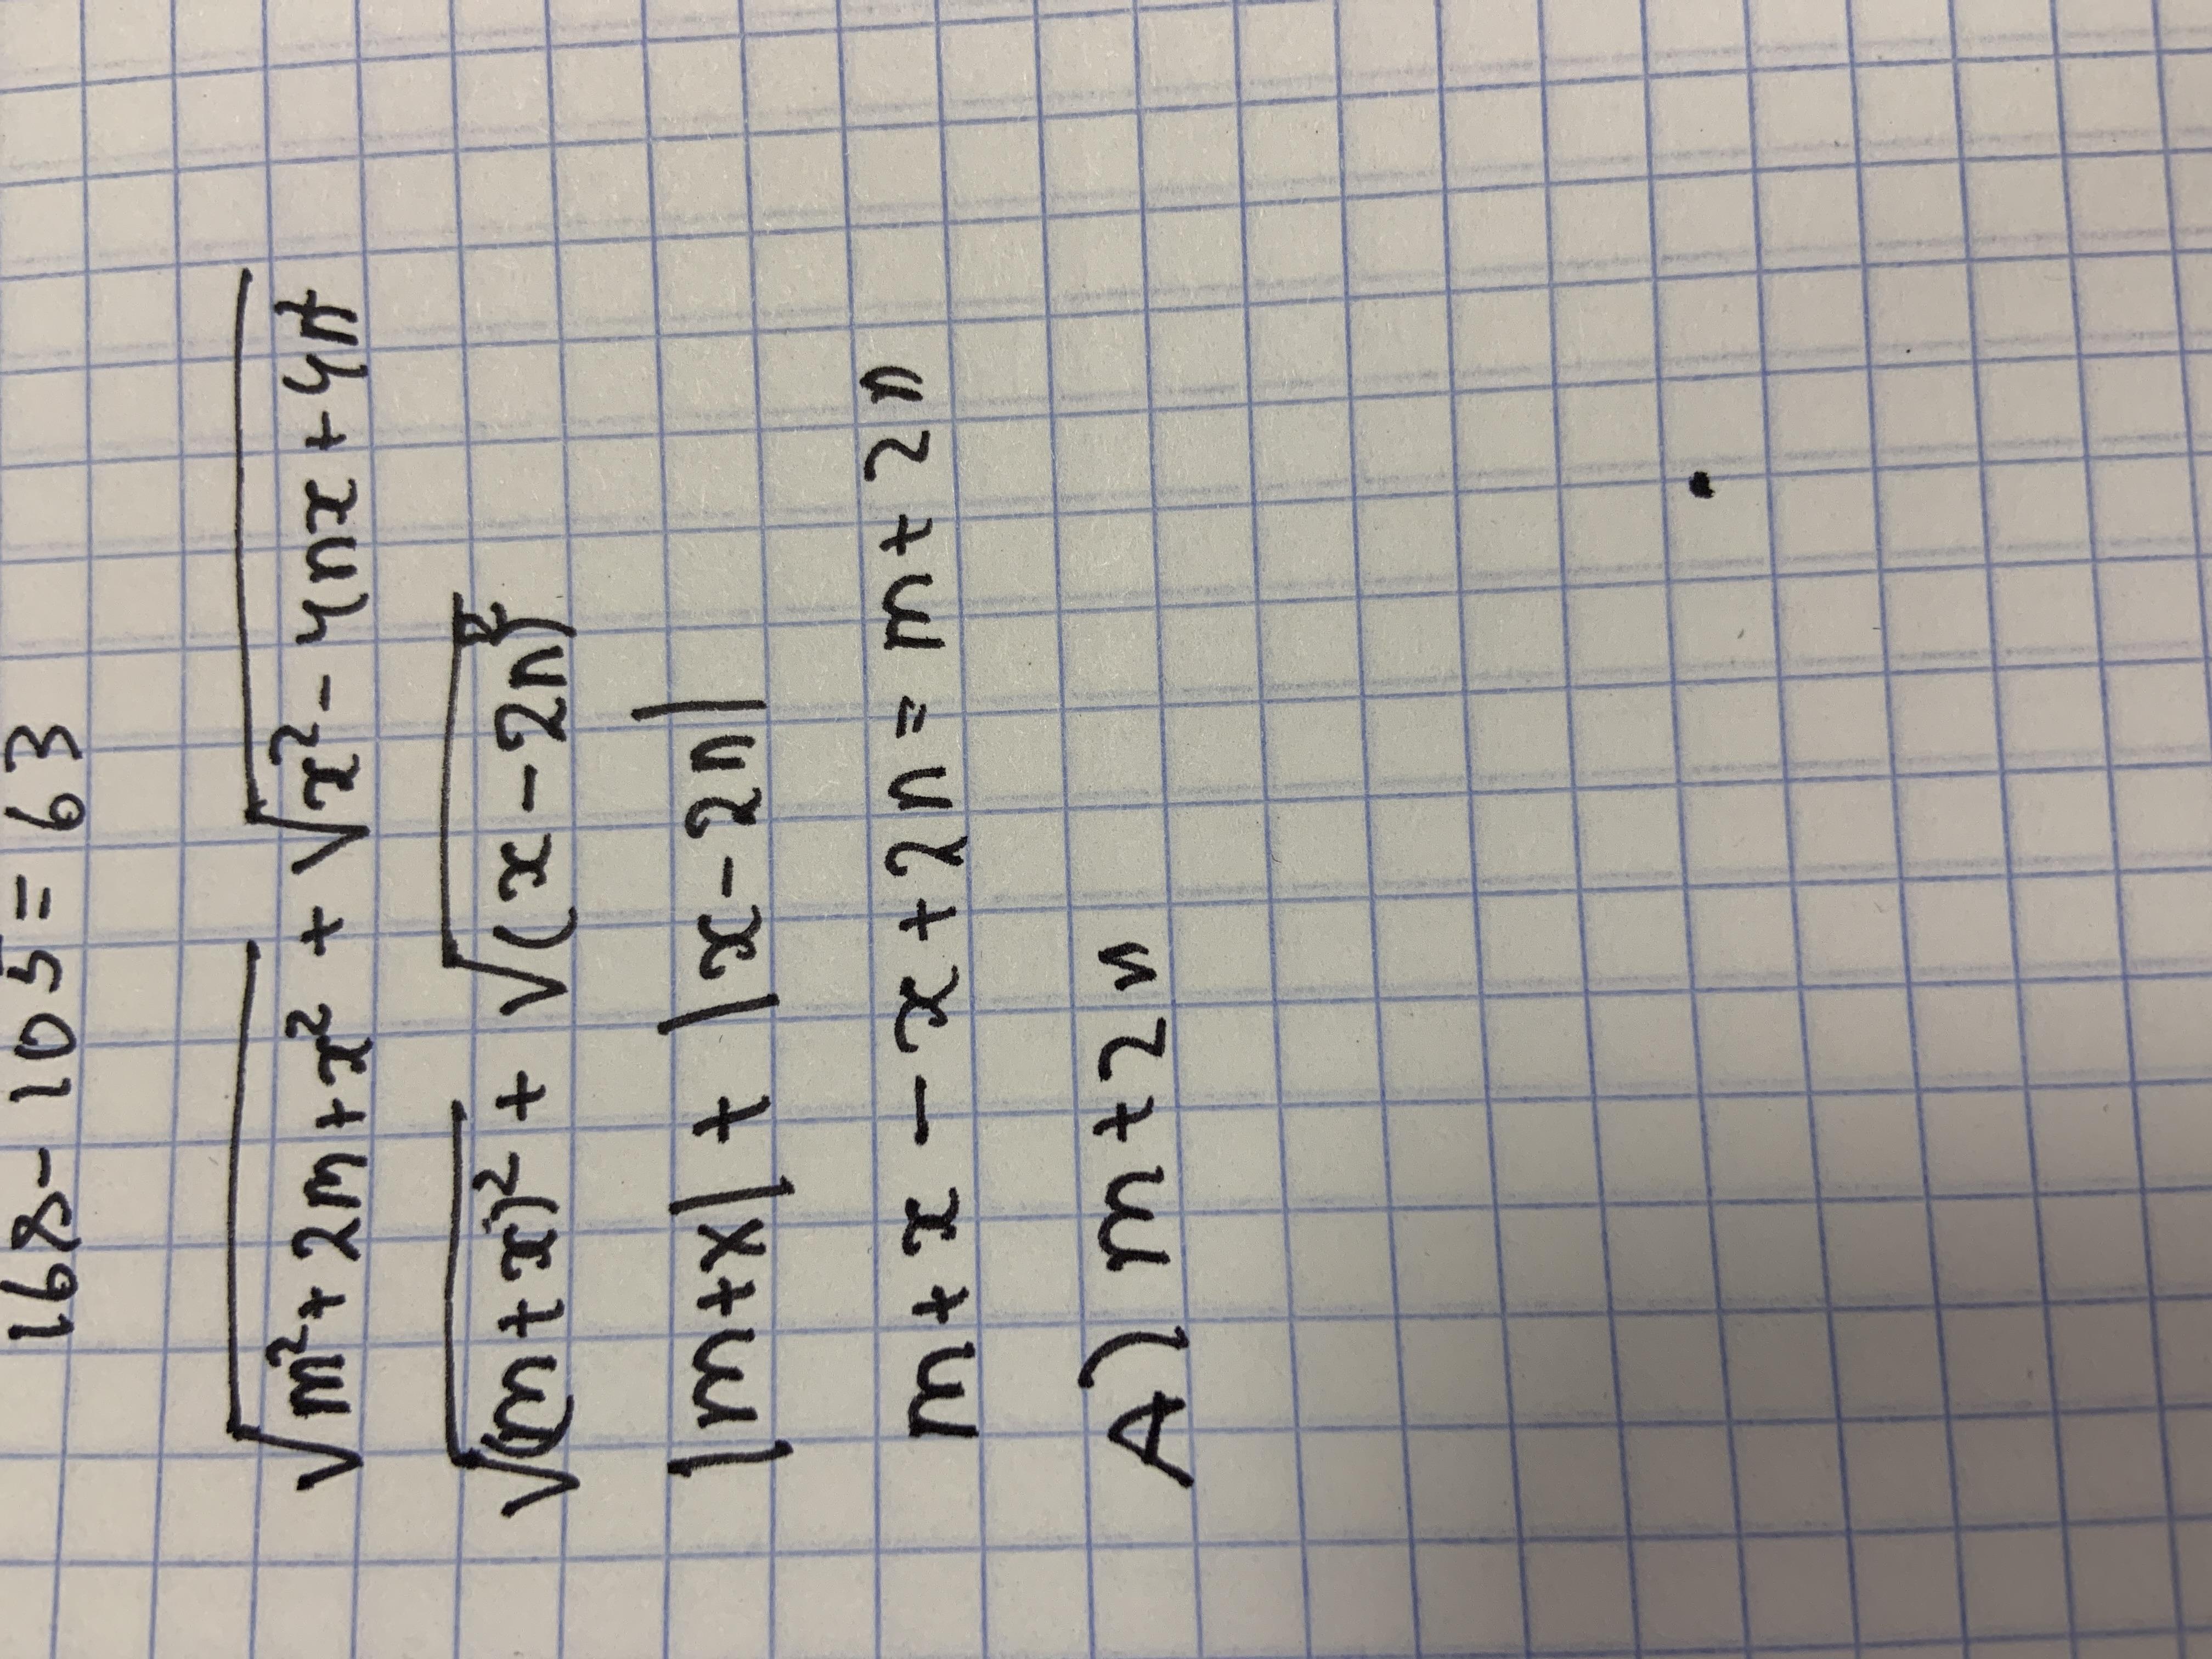 168 - 105 = 63
√m²+2m+x² + √x²-4nx+4n
√(m+x)² + √(x-2n)²
|m+x| + |x-2n|
m+x-x+2n = m+2n
A) m+2n